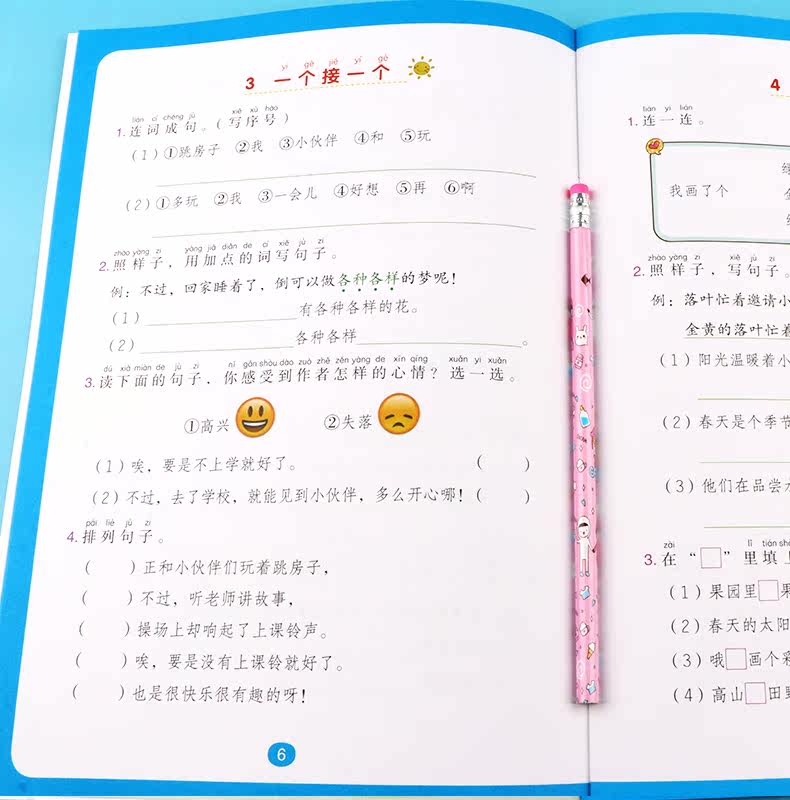 yí gè jiē yí gè
3 一个接一个
lián cí chéng jù xiě xù hào
1.连词成句。(写序号)
(1)①跳房子 ②我 ③小伙伴 ④和 ⑤玩
(2)①多玩 ②我 ③一会儿 ④好想 ⑤再 ⑥啊
zhào yàng zi yòng jiā diǎn de cí xiě jù zi
2.照样子,用加点的词写句子。
例:不过,回家睡着了,倒可以做各种各样的梦呢!
(1)有各种各样的花。
(2)各种各样。
dú xià miàn de jù zi nǐ gǎn shòu dào zuò zhě zěn yàng de xīn qíng xuǎn yi xuǎn
3.读下面的句子,你感受到作者怎样的心情?选一选。
①高兴 ②失落
(1)唉,要是不上学就好了。 ( )
(2)不过,去了学校,就能见到小伙伴,多么开心哪!( )
pái liè jù zi
4.排列句子。
( )正和小伙伴们玩着跳房子,
( )不过,听老师讲故事,
( )操场上却响起了上课铃声。
( )唉,要是没有上课铃就好了。
( )也是很快乐很有趣的呀!
6
4
lián yi lián
1.连一连。
我画了个
zhào yàng zi xiě jù zi
2.照样子,写句子。
例:落叶忙着邀请小
金黄的落叶忙着
(1)阳光温暖着小
(2)春天是个季节
(3)他们在品尝
zài lǐ tián
3.在“□”里填上
(1)果园里□果
(2)春天的太阳
(3)哦□画个彩
(4)高山□田野